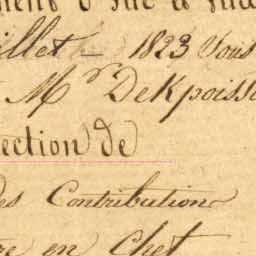 illet 1823 Sous
Mr Dekpoiss
ection de
des Contribution
re en Chef